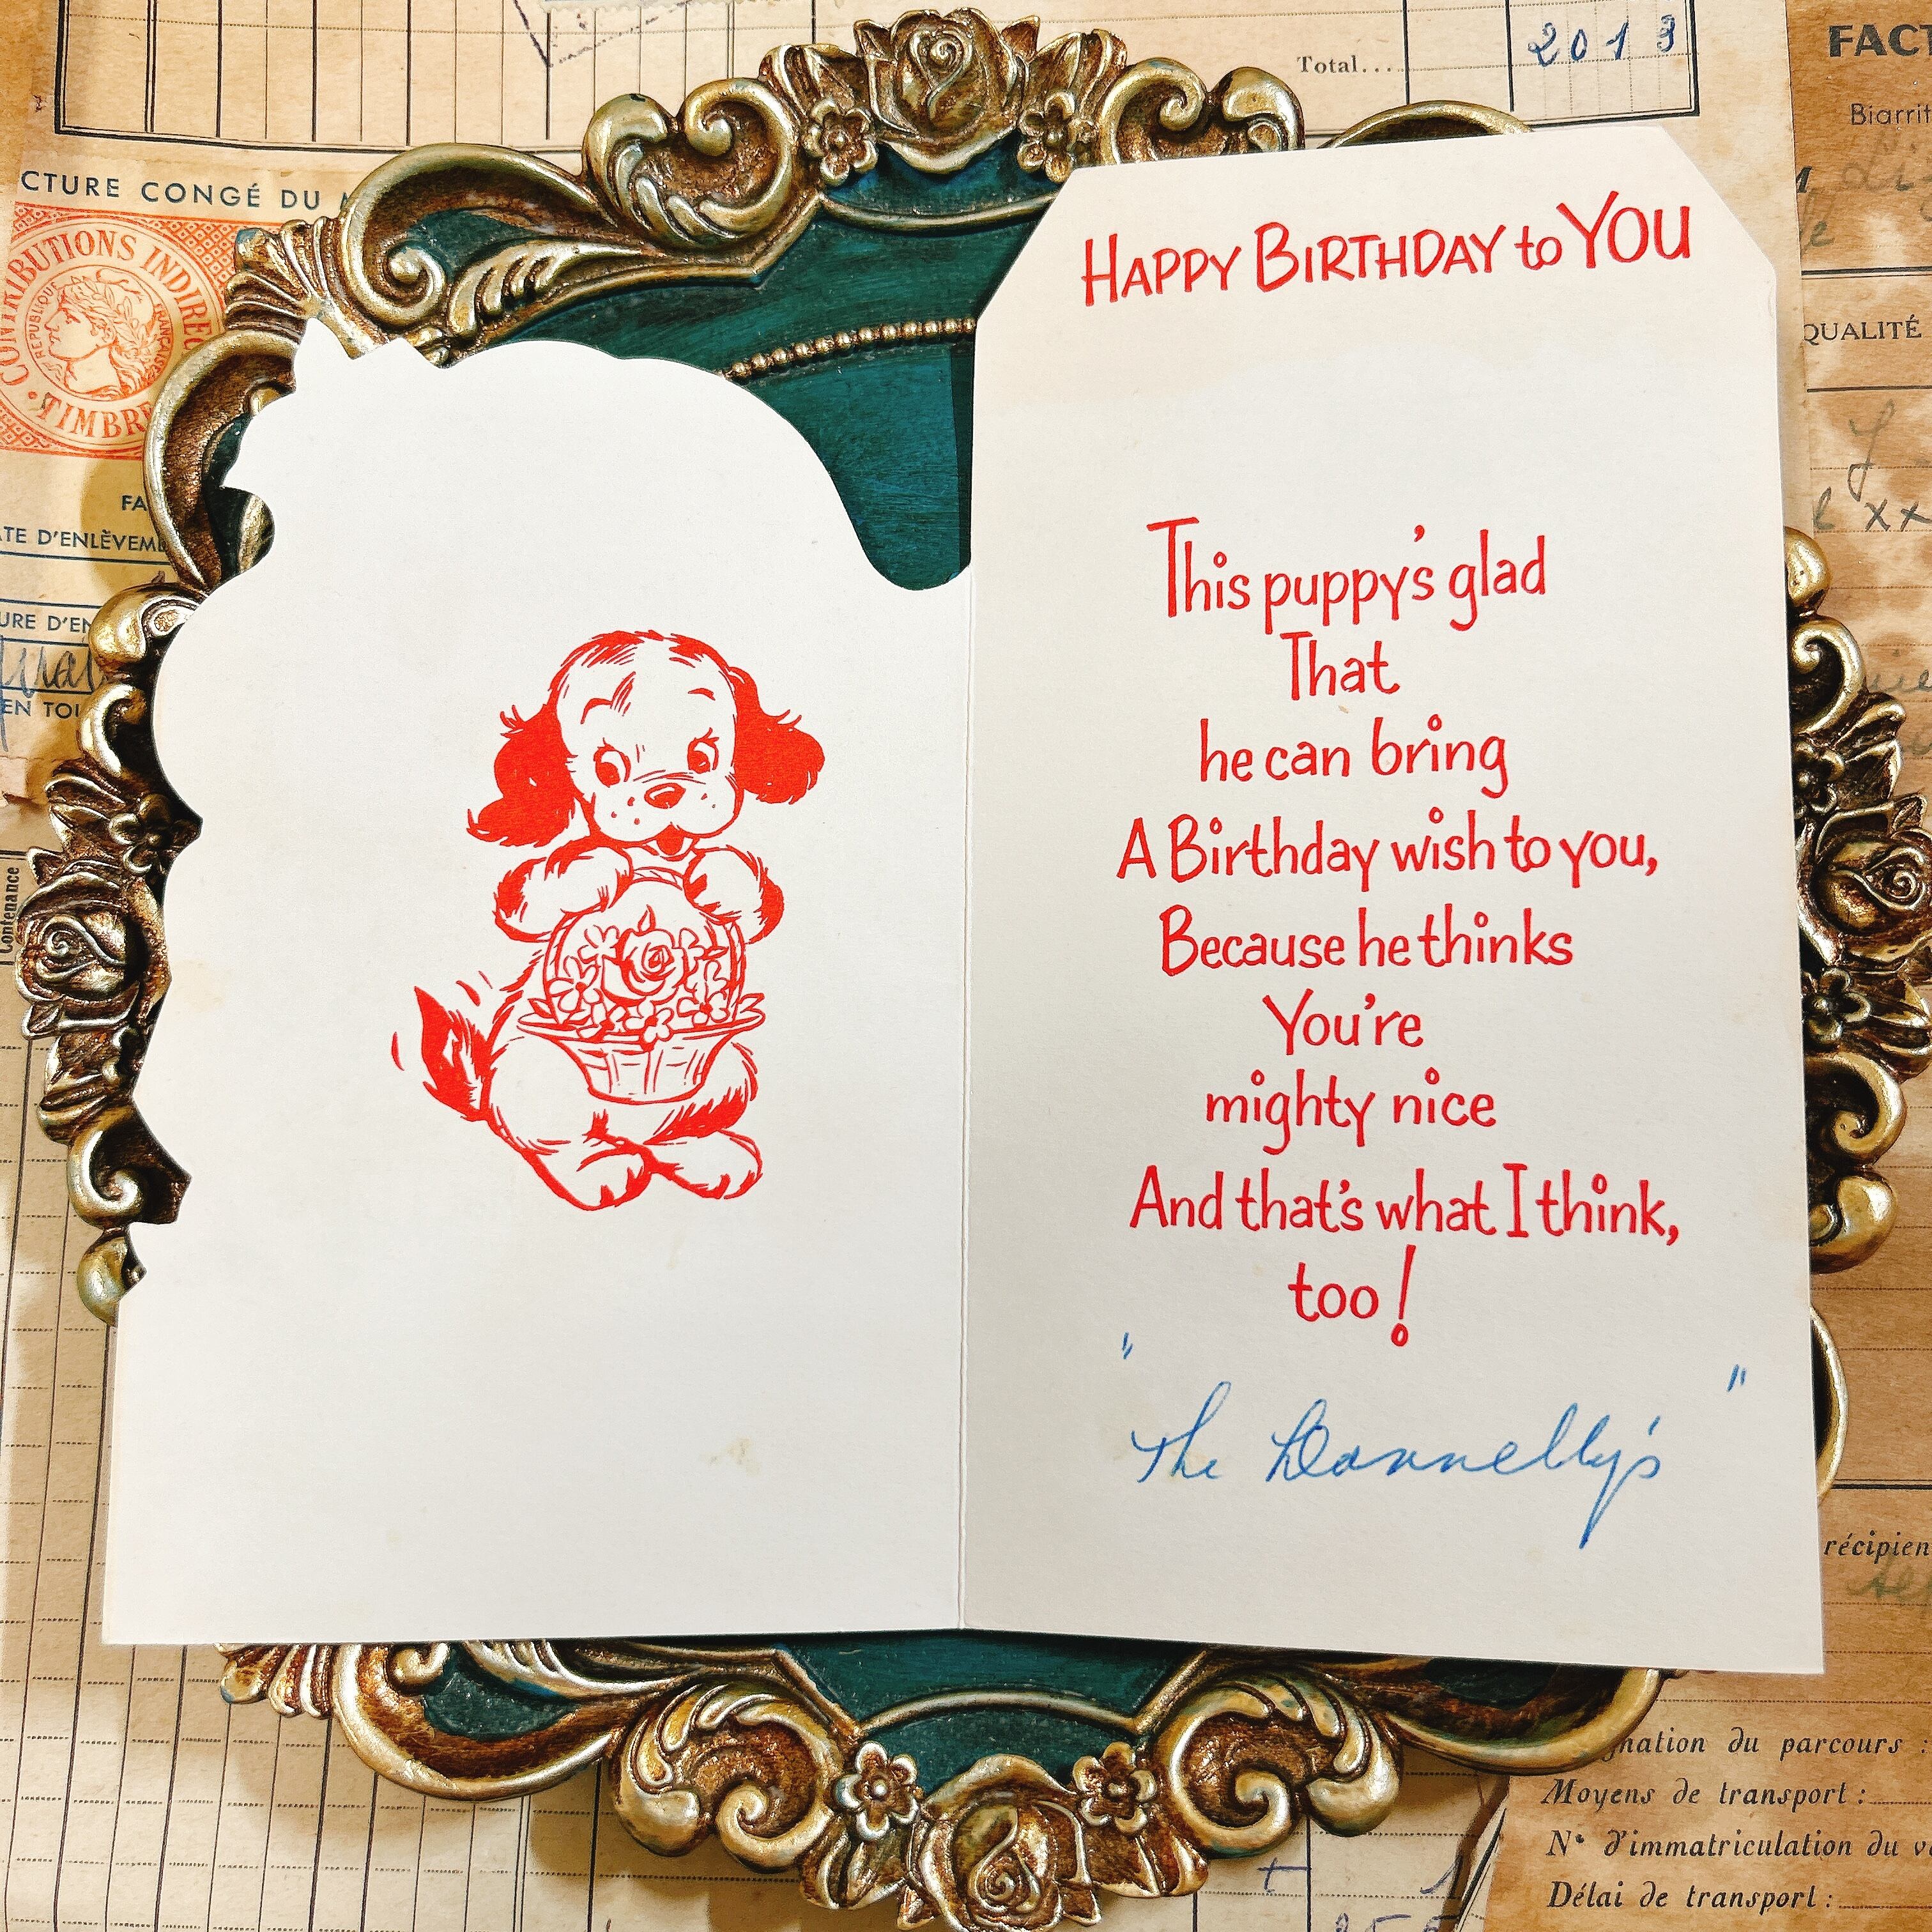 Total...
2013
FACT
Biarrit
CTURE CONGÉ DU M
CONTRIBUTIONS INDIREC
REPUBLIQUE FRANÇAISE
TIMBRE
QUALITÉ
xx
FA
ATE D'ENLÈVEME
URE D'EN
EN TOU
Contenance
HAPPY BIRTHDAY to YOU
This puppy's glad
That
he can bring
A Birthday wish to you,
Because he thinks
You're
mighty nice
And that's what I think,
too!
"The Donnelly's"
récipien
gnation du parcours :
Moyens de transport :
N° d'immatriculation du v
Délai de transport :